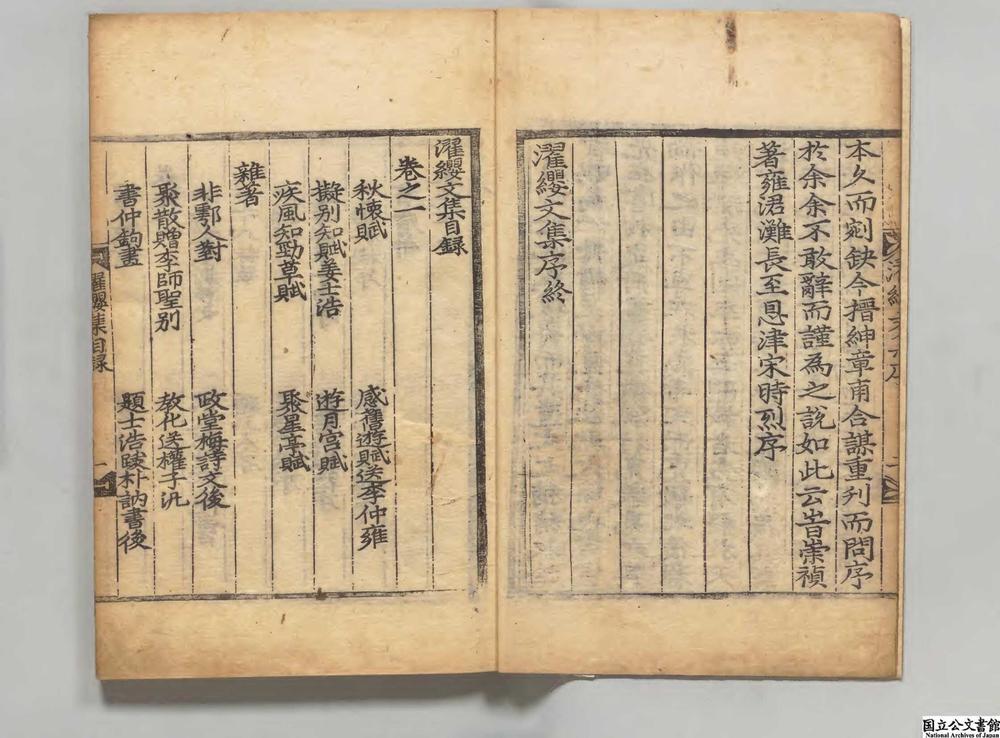 本久而剜缺今搢紳章甫合謀重刋而問序
於余余不敢辭而謹為之說如此云旹崇禎
著雍涒灘長至恩津宋時烈序
濯纓文集序終
濯纓文集目録
卷之一
秋懷賦 感舊遊賦送李仲雍
擬别知賦姜士浩 遊月宮賦
疾風知勁草賦 聚星亭賦
雜著
非鄷人對 政堂梅詩文後
聚散贈李師聖别 教化送權子汎
書仲鈞畫 題士浩跋朴訥書後
濯纓集目録 一
国立公文書館
National Archives of Japan